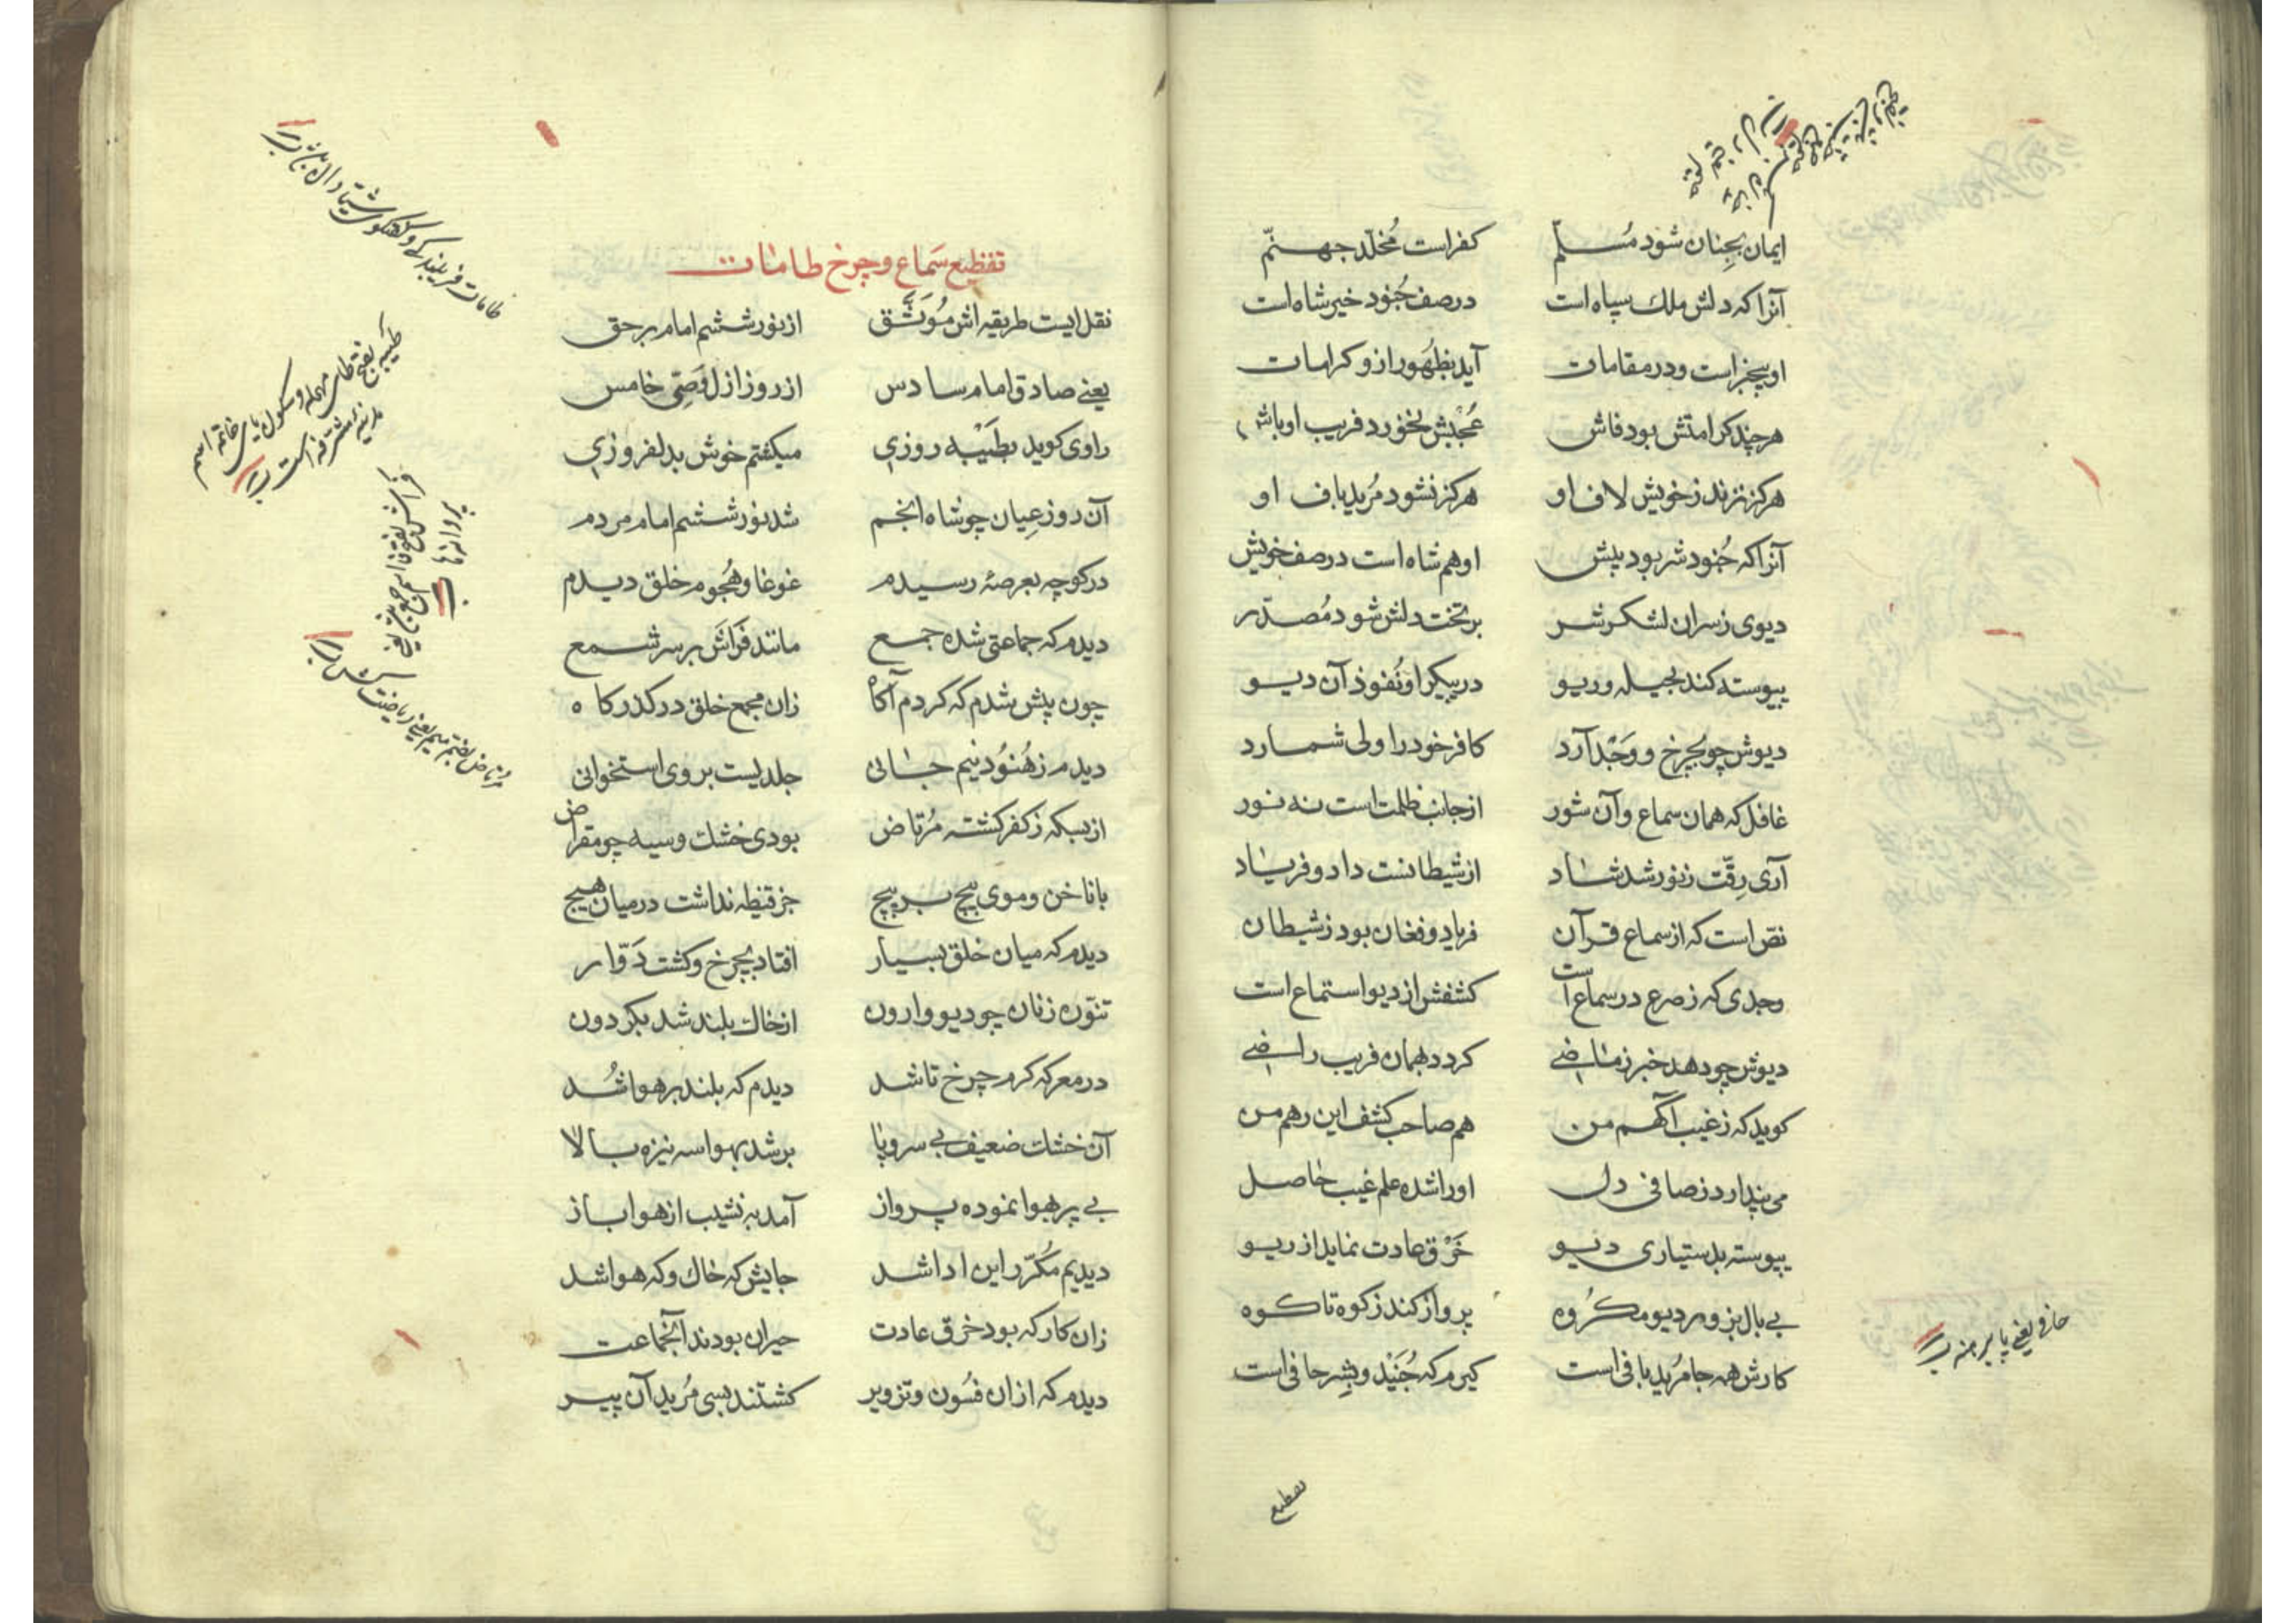 ایمان بجِنان شود مُسلّم کفر است مُخلّد جهنّم
آنرا که دلش ملك سپاه است در صف جُنود خیر شاه است
او بیخبر است و در مقامات آید بظهُور ازو کرامات
هر چند کرامتش بود فاش عُجبش نخورد فریب اوباش
هرکز نزند ز خویش لاف او هرکز نشود مُرید باف او
آنرا که جُنود شر بود پیش او هم شاه است در صف خویش
دیوی ز سران لشکر شر بر تخت دلش شود مُصدّر
پیوسته کند بحیله و ریو در پیکر او نُفوذ آن دیو
دیوش چو بچرخ و وَجْد آرد کافر خود را ولی شمارد
غافل که همان سماع و آن شور از جانب ظلمت است نه نور
آری رقّت ز نور شد شاد از شیطانست داد و فریاد
نص است که از سماع قرآن فریاد و فغان بود ز شیطان
وجدی که ز صرع در سماع است کشفش از دیو استماع است
دیوش چو دهد خبر ز ماضے کردد بهمان فریب راضے
کوید که ز غیب آکهم من هم صاحب کشف این رهم من
می پندارد ز صافی دل او را شده علم غیب حاصل
پیوسته بدستیاری دیو خَرْق عادت نماید از ریو
بے بال بزور دیو مکرُوه پرواز کند ز کوه تا کوه
کارش همه جا مُرید بافی است کیرم که جُنَیْد و بِشر حافی است
حافی یعنے پا برهنه
تفظیع سَماع و چرخ طامات
نقل ایست طریقه اش مُوَثَّق از نور ششم امام بر حق
یعنے صادق امام سادس از روز ازل وَصِّی خامس
راوی کوید بطَیْبه روزی میکفتم خوش بدلفروزی
آن روز عِیان چو شاه انجم شد نور ششم امام مردم
در کوچه بعرصۀ رسیدم غوغا و هُجوم خلق دیدم
دیدم که جماعتی شده جمع مانند فَراش بر سر شمع
چون پیش شدم که کردم آکاه زان مجمع خلق در کذرکاه
دیدم ز هُنُود نیم جانی جلدیست بروی استخوانی
از بسکه ز کفر کشته مُرتاض بودی خشك و سیه چو مقراض
با ناخن و موی پیچ بر پیچ جز قنیطه نداشت در میان هیچ
دیدم که میان خلق بسیار افتاد بچرخ و کشت دَوّار
تنّوره زنان چو دیو وارون از خاك بلند شد بکردون
در معرکه کرم چرخ تا شد دیدم که بلند بر هوا شُد
آن خشك ضعیف بے سر و پا بر شد بهوا سه نیزه بالا
بے پر بهوا نموده پرواز آمد به نشیب از هوا باز
دیدیم مُکرّر این ادا شد جایش که خاك و که هوا شد
زان کار که بود خرق عادت حیران بودند آنجماعت
دیدم که ازان فسُون و تزویر کشتند بسی مُرید آن پیر
طَیبه بفتح طای مهمله و سکون یای خاتمه اسم مدینۀ مشرفه است
فراش بفتح فا اسم جمع است یعنے پروانه ها
مُرتاض بضم میم یعنے ریاضت کش
تفظیع